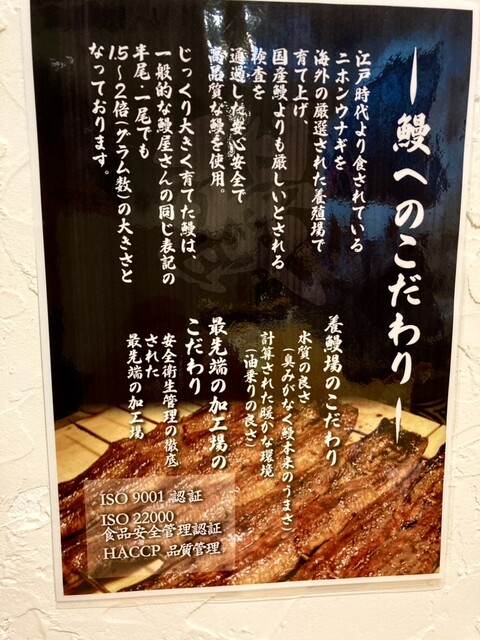 鰻へのこだわり
江戸時代より食されている
ニホンウナギを
海外の厳選された養殖場で
育て上げ、
国産鰻よりも厳しいとされる
検査を
通過した安心安全で
高品質な鰻を使用。
じっくり大きく育てた鰻は、
一般的な鰻屋さんの同じ表記の
半尾・一尾でも
1.5〜2倍(グラム数)の大きさと
なっております。
養鰻場のこだわり
水質の良さ
(臭みがなく鰻本来のうまさ)
計算された暖かな環境
(油乗りの良さ)
最先端の加工場の
こだわり
安全衛生管理の徹底
された
最先端の加工場
ISO 9001 認証
ISO 22000
食品安全管理認証
HACCP 品質管理